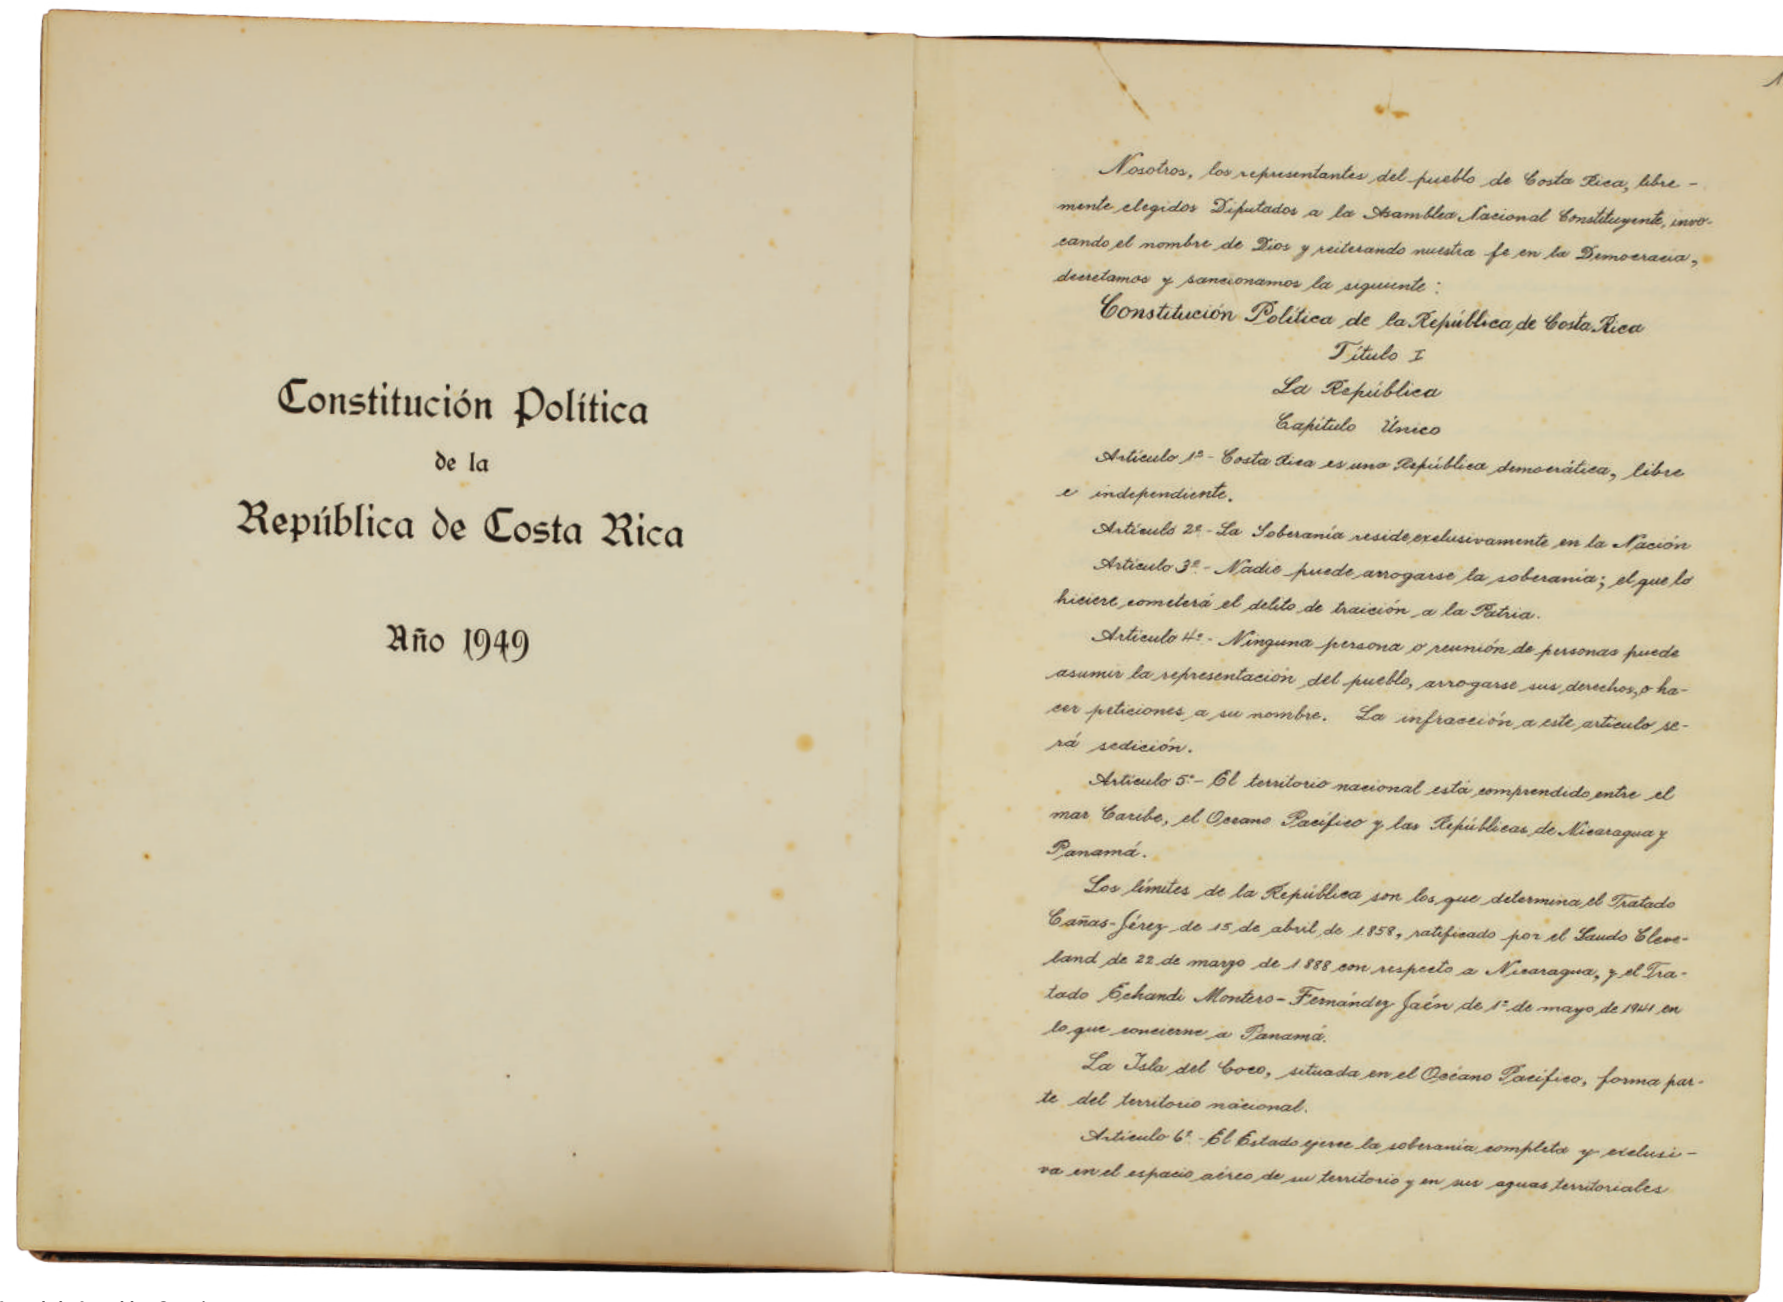 Constitución Política
de la
República de Costa Rica
Año 1949
1
Nosotros, los representantes del pueblo de Costa Rica, libre-
mente elegidos Diputados a la Asamblea Nacional Constituyente, invo-
cando el nombre de Dios y reiterando nuestra fe en la Democracia,
decretamos y sancionamos la siguiente:
Constitución Política de la República de Costa Rica
Título I
La República
Capítulo Único
Artículo 1º- Costa Rica es una República democrática, libre
e independiente.
Artículo 2º- La Soberanía reside exclusivamente en la Nación
Artículo 3º- Nadie puede arrogarse la soberanía; el que lo
hiciere cometerá el delito de traición a la Patria.
Artículo 4º- Ninguna persona o reunión de personas puede
asumir la representación del pueblo, arrogarse sus derechos, o ha-
cer peticiones a su nombre. La infracción a este artículo se-
rá sedición.
Artículo 5º- El territorio nacional está comprendido entre el
mar Caribe, el Océano Pacífico y las Repúblicas de Nicaragua y
Panamá.
Los límites de la República son los que determina el Tratado
Cañas-Jérez de 15 de abril de 1858, ratificado por el Laudo Cleve-
land de 22 de marzo de 1888 con respecto a Nicaragua, y el Tra-
tado Echandi Montero-Fernández Jaén de 1º de mayo de 1941 en
lo que concierne a Panamá.
La Isla del Coco, situada en el Océano Pacífico, forma par-
te del territorio nacional.
Artículo 6º- El Estado ejerce la soberanía completa y exclusi-
va en el espacio aéreo de su territorio y en sus aguas territoriales